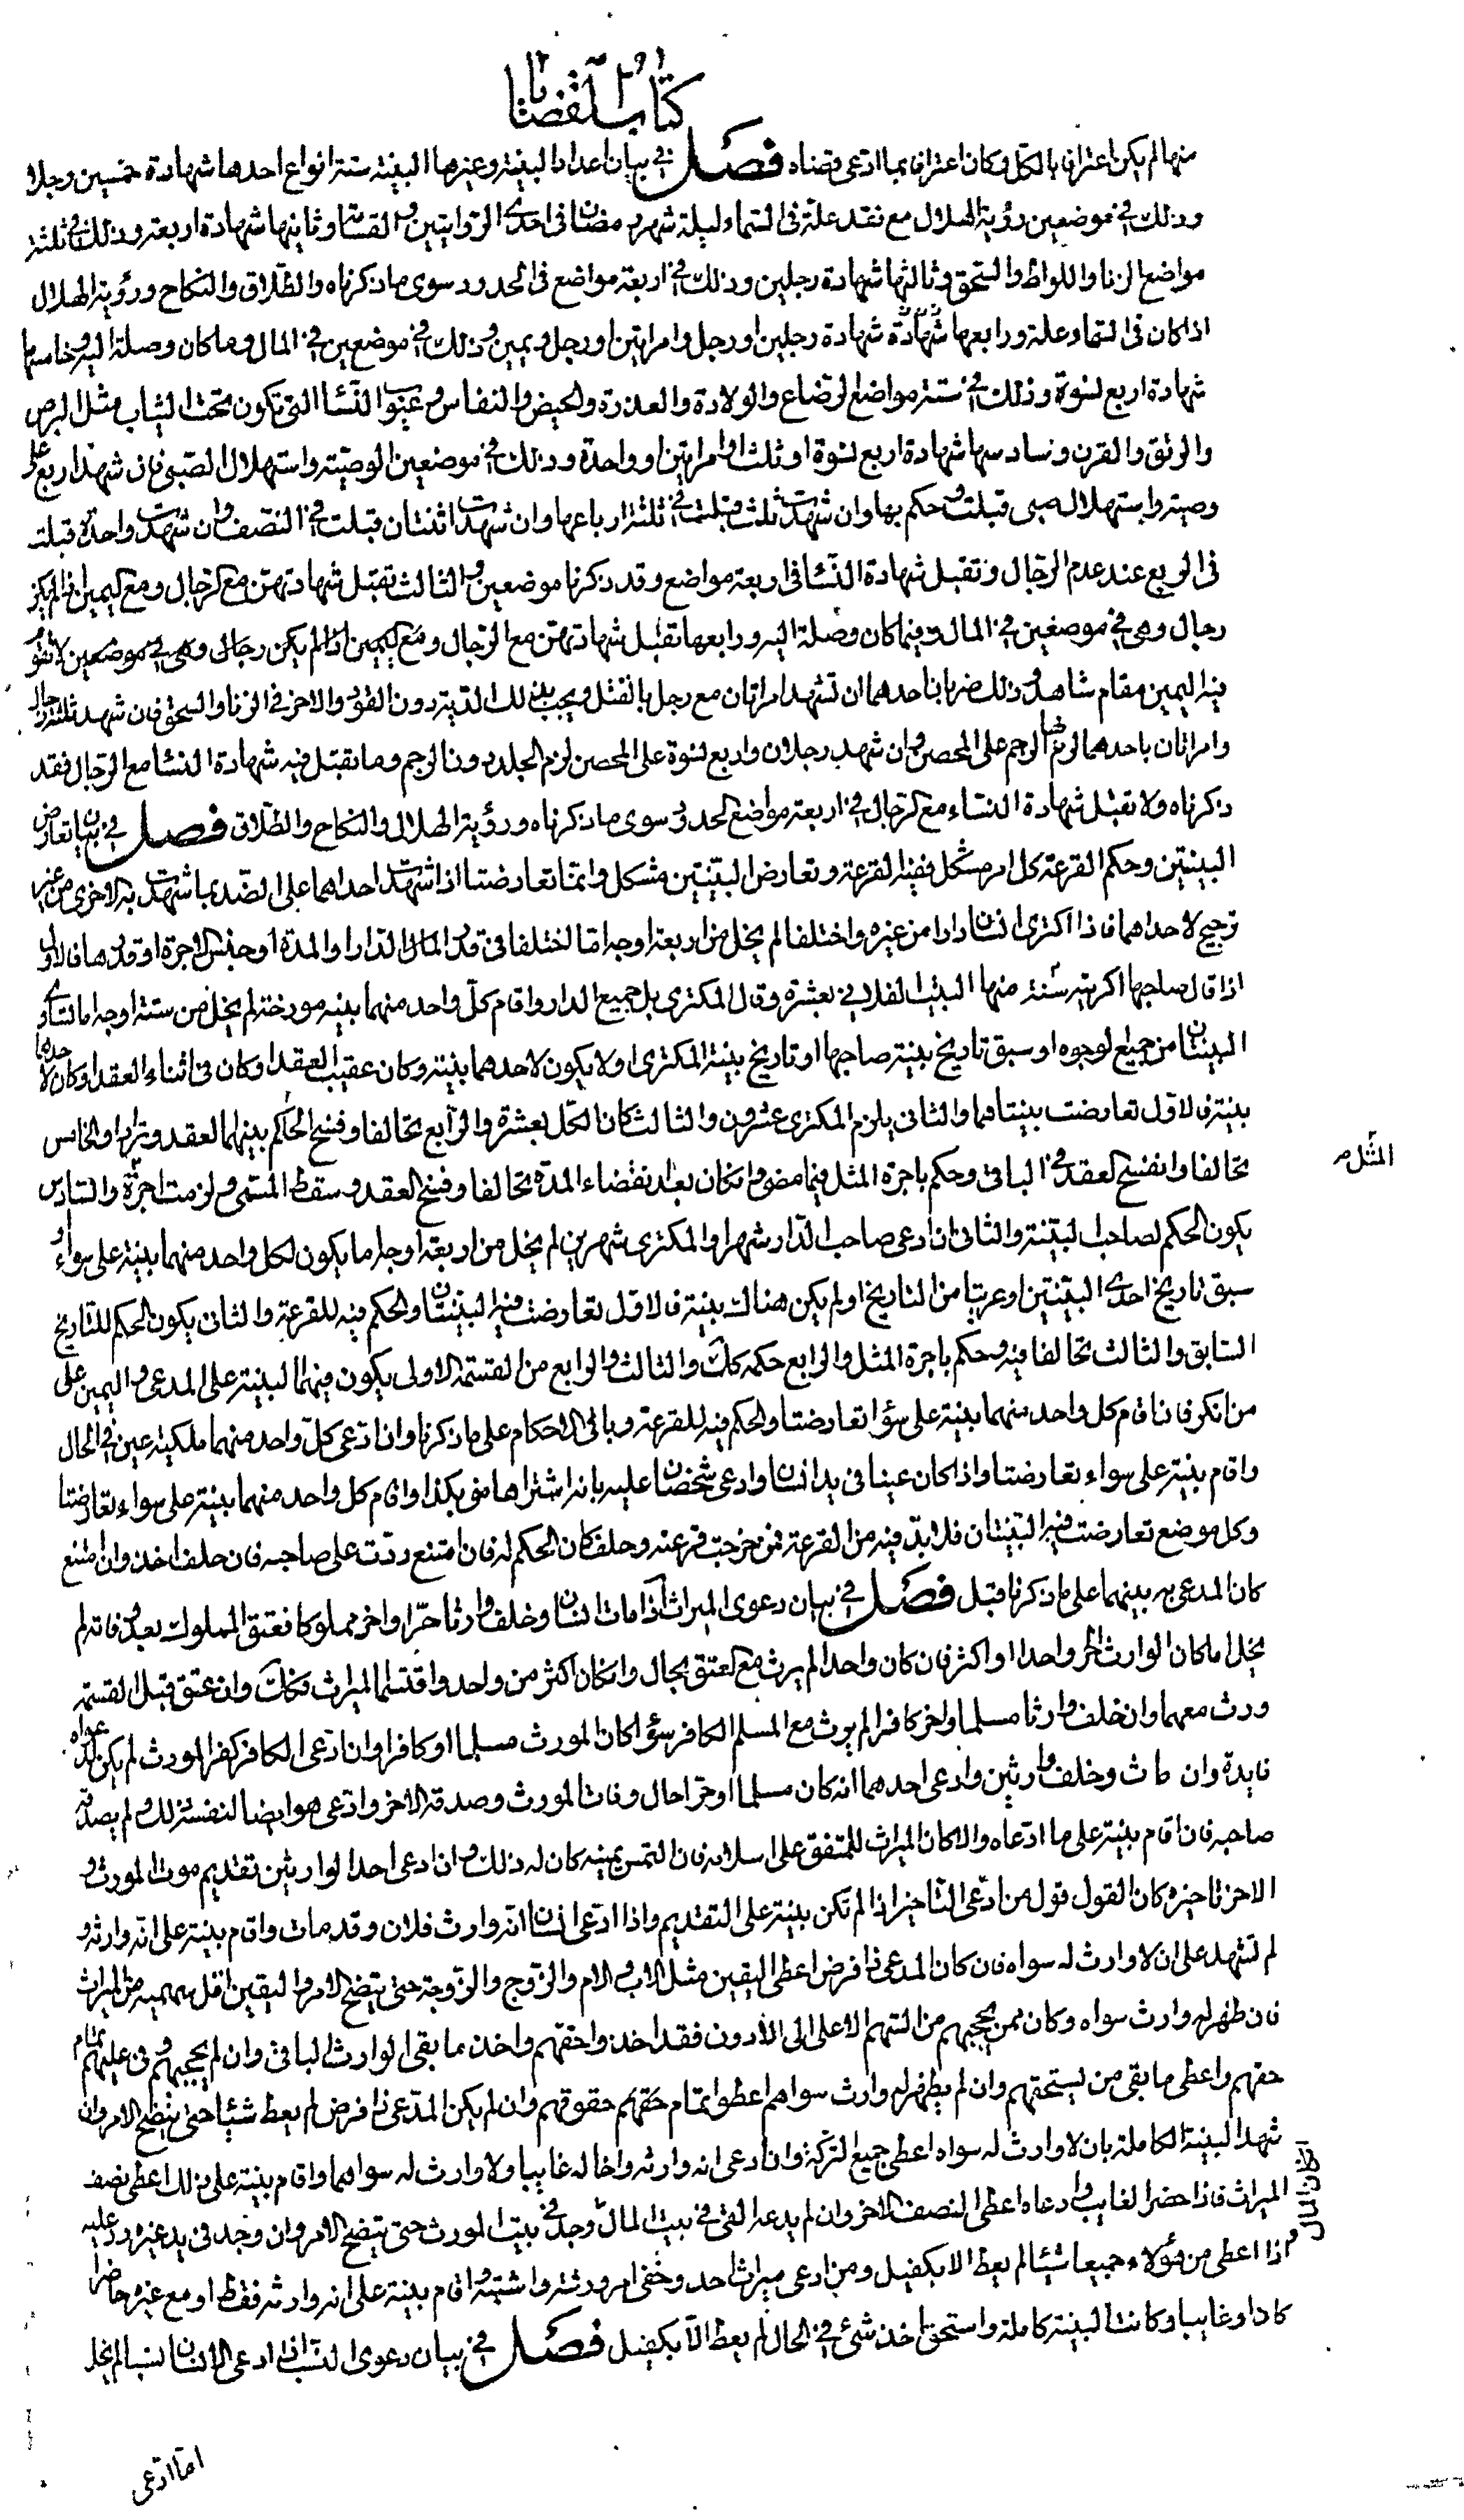 كتاب القضايا
منهما لم يكن اعترافا بالكل وكان اعترافا بما ادعى قضاه فصل في بيان اعداد البينة وغيرها البينة ستة انواع احدها شهادة خمسين رجلا
وذلك في موضعين رؤية الهلال مع فقد علة في السماء ليلة شهر رمضان في احدى الروايتين والقسامة وثانيها شهادة اربعة وذلك في ثلثة
مواضع الزنا واللواط والسحق وثالثها شهادة رجلين وذلك في اربعة مواضع في الحدود سوى ما ذكرناه والطلاق والنكاح ورؤية الهلال
اذا كان في السماء علة ورابعها شهادة شهادة رجلين او رجل وامراتين او رجل ويمين وذلك في موضعين في المال وما كان وصلة اليه وخامسها
شهادة اربع نسوة وذلك في ستة مواضع الرضاع والولادة والعذرة والحيض والنفاس وعيوب النساء التي تكون تحت الثياب مثل البرص
والرتق والقرن وسادسها شهادة اربع نسوة او ثلث او امراتين او واحدة وذلك في موضعين الوصية واستهلال الصبي فان شهد اربع على
وصية واستهلال صبي قبلت وحكم بها وان شهدت ثلث قبلت في ثلثة ارباعها وان شهدت اثنتان قبلت في النصف وان شهدت واحدة قبلت
في الربع عند عدم الرجال وتقبل شهادة النساء في اربعة مواضع وقد ذكرنا موضعين والثالث تقبل شهادتهن مع الرجال ومع اليمين اذا لم يكن
رجال وهي في موضعين في المال وفيما كان وصلة اليه ورابعها تقبل شهادتهن مع الرجال ومع اليمين اذا لم يكن رجال وهي في موضعين لا تقوم
فيه اليمين مقام شاهد وذلك ضربان احدهما ان تشهد امراتان مع رجل بالقتل ويجب بذلك الدية دون القود والاخر في الزنا والسحق فان شهد ثلثة رجال
وامراتان باحدهما لزم الرجم على المحصن وان شهد رجلان واربع نسوة على المحصن لزم الجلد دون الرجم وما تقبل فيه شهادة النساء مع الرجال فقد
ذكرناه ولا تقبل شهادة النساء مع الرجال في اربعة مواضع الحدود سوى ما ذكرناه ورؤية الهلال والنكاح والطلاق فصل في بيان تعارض
البينتين وحكم القرعة كل امر مشكل ففيه القرعة وتعارض البينتين مشكل وانما تعارضتا اذا شهدت احداهما على الضد بما شهدت به الاخرى من غير
ترجيح لاحداهما فاذا اكترى انسان دارا من غيره واختلفا لم يخل من اربعة اوجه اما اختلفا في قدر المال الدار او المدة او جنس الاجرة او قدرها فالاول
اذا قال صاحبها اكريته سنة منها البيت الفلاني بعشرة وقال المكتري بل جميع الدار واقام كل واحد منهما بينة مورخة لم يخل من ستة اوجه اما تساوى
البينتان من جميع الوجوه او سبق تاريخ بينة صاحبها او تاريخ بينة المكتري او لا يكون لاحدهما بينة وكان عقيب العقد او كان في اثناء العقد او كان لاحدهما
بينة فالاول تعارضت بينتاهما والثاني يلزم المكتري عشرون والثالث كان الكل بعشرة والرابع تحالفا وفسخ الحاكم بينهما العقد وترادا والخامس
تحالفا وانفسخ العقد في الباقي وحكم باجرة المثل فيما مضى وان كان بعد انقضاء المدة تحالفا وفسخ العقد وسقط المسمى ولزمت اجرة والسادس
المثل م
يكون الحكم لصاحب البينة والثاني ان ادعى صاحب الدار شهرا والمكتري شهرين لم يخل من اربعة اوجه اما يكون لكل واحد منهما بينة على سواء او
سبق تاريخ احدى البينتين او عريتا من التاريخ او لم يكن هناك بينة فالاول تعارضت فيه البينتان والحكم فيه للقرعة والثاني يكون الحكم للتاريخ
السابق والثالث تحالفا فيه وحكم باجرة المثل والرابع حكمه كك والثالث والرابع من القسمة الاولى يكون فيهما البينة على المدعي واليمين على
من انكر فان اقام كل واحد منهما بينة على سواء تعارضتا والحكم فيه للقرعة وباقي الاحكام على ما ذكرنا وان ادعى كل واحد منهما ملكية عين في الحال
واقام بينة على سواء تعارضتا واذا كان عينا في يد انسان وادعى شخصان عليه بانه اشتراها مني بكذا واقام كل واحد منهما بينة على سواء تعارضتا
وكل موضع تعارضت فيه البينتان فلا بد فيه من القرعة فمن خرجت قرعته وحلف كان الحكم له فان امتنع ردت على صاحبه فان حلف اخذ وان امتنع
كان المدعى به بينهما على ما ذكرنا قبل فصل في بيان دعوى الميراث اذا مات انسان وخلف وارثا حرا واخر مملوكا فعتق المملوك بعد وفاته لم
يخل اما كان الوارث الحر واحدا او اكثر فان كان واحدا لم يرث مع المعتق بحال وان كان اكثر من واحد واقتسما الميراث فكك وان عتق قبل القسمة
ورث معهما وان خلف وارثا مسلما واخر كافرا لم يرث مع المسلم الكافر سواء كان المورث مسلما او كافرا وان ادعى الكافر كفر المورث لم يكن لدعواه
فايدة وان مات وخلف وارثين وادعى احدهما انه كان مسلما او حرا حال وفات المورث وصدقه الاخر وادعى هو ايضا لنفسه ذلك ولم يصدقه
صاحبه فان اقام بينة على ما ادعاه والا كان الميراث للمتفق على اسلامه فان التمس يمينه كان له ذلك وان ادعى احد الوارثين تقديم موت المورث و
الاخر تاخيره كان القول قول من ادعى التاخير اذا لم تكن بينة على التقديم واذا ادعى انسان انه وارث فلان وقد مات واقام بينة على انه وارثه و
لم تشهد على ان لا وارث له سواه فان كان المدعي ذا فرض اعطي اليقين مثل الاب والام والزوج والزوجة حتى يتضح الامر واليقين اقل سهميه من الميراث
فان ظهر له وارث سواه وكان ممن يحجبهم من السهم الاعلى الى الادون فقد اخذوا حقهم واخذ ما بقي الوارث الباقي وان لم يحجبهم وفى عليهم تمام
حقهم واعطى ما بقي من يستحقهم وان لم يظهر له وارث سواهم اعطوا تمام حقهم حقوقهم وان لم يكن المدعي ذا فرض لم يعط شيئا حتى يتضح الامر وان
شهد البينة الكاملة بان لا وارث له سواه اعطي جميع التركة وان ادعى انه وارثه واخا له غايبا ولا وارث له سواهما واقام بينة على ذلك اعطي نصف
الميراث فاذا حضر الغايب وادعاه اعطي النصف الاخر وان لم يدعه القي في بيت المال وجد في بيت المورث حتى يتضح الامر وان وجد في يد غيره رد عليه
واذا اعطي من هؤلاء جميعا شيئا لم يعط الا بكفيل ومن ادعى ميراث احد وخفي امر ورثته واشتبه واقام بينة على انه وارثه فقط او مع غيره حاضرا
كان او غايبا وكانت البينة كاملة واستحق اخذ شئ في الحال لم يعط الا بكفيل فصل في بيان دعوى النسب اذا ادعى الانسان نسبا لم يخل
اما ادعى